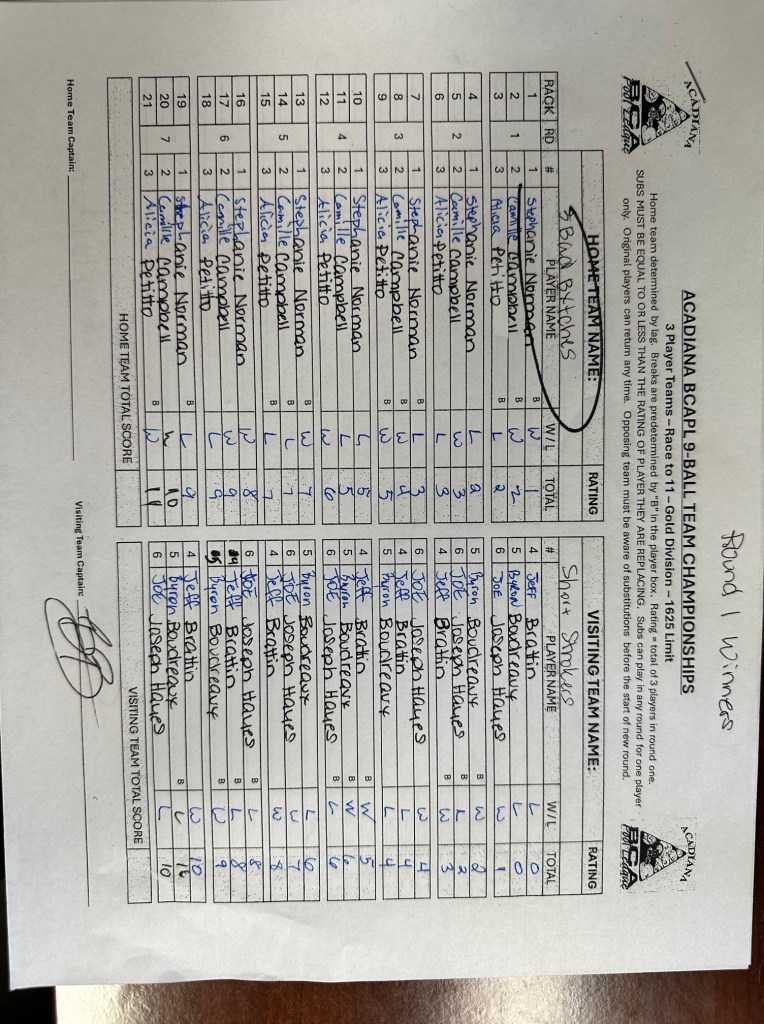 Round 1 Winners
ACADIANA BCA Pool League
ACADIANA BCAPL 9-BALL TEAM CHAMPIONSHIPS
ACADIANA BCA Pool League
3 Player Teams – Race to 11 – Gold Division – 1625 Limit
Home team determined by lag. Breaks are predetermined by "B" in the player box. Rating = total of 3 players in round one.
SUBS MUST BE EQUAL TO OR LESS THAN THE RATING OF PLAYER THEY ARE REPLACING. Subs can play in any round for one player
only. Original players can return any time. Opposing team must be aware of substitutions before the start of new round.
HOME TEAM NAME: RATING VISITING TEAM NAME: RATING
3 Bad B*tches Short Strokers
RACK RD # PLAYER NAME W/L TOTAL # PLAYER NAME W/L TOTAL
1 1 Stephanie Norman B W 1 4 Jeff Brattin L 0
2 1 2 Camille Campbell B W 2 5 Byron Boudreaux L 0
3 3 Alicia Petitto B L 2 6 Joe Joseph Hayes W 1
4 1 Stephanie Norman L 2 5 Byron Boudreaux B W 2
5 2 2 Camille Campbell W 3 6 Joe Joseph Hayes B L 2
6 3 Alicia Petitto L 3 4 Jeff Brattin B W 3
7 1 Stephanie Norman B L 3 6 Joe Joseph Hayes W 4
8 3 2 Camille Campbell B W 4 4 Jeff Brattin L 4
9 3 Alicia Petitto B W 5 5 Byron Boudreaux L 4
10 1 Stephanie Norman L 5 4 Jeff Brattin B W 5
11 4 2 Camille Campbell L 5 5 Byron Boudreaux B W 6
12 3 Alicia Petitto W 6 6 Joe Joseph Hayes B L 6
13 1 Stephanie Norman B W 7 5 Byron Boudreaux L 6
14 5 2 Camille Campbell B L 7 6 Joe Joseph Hayes W 7
15 3 Alicia Petitto B L 7 4 Jeff Brattin W 8
16 1 Stephanie Norman W 8 6 Joe Joseph Hayes B L 8
17 6 2 Camille Campbell W 9 4 Jeff Brattin B L 8
18 3 Alicia Petitto L 9 5 Byron Boudreaux B W 9
19 1 Stephanie Norman B L 9 4 Jeff Brattin W 10
20 7 2 Camille Campbell W 10 5 Byron Boudreaux B L 10
21 3 Alicia Petitto B W 11 6 Joe Joseph Hayes L 10
HOME TEAM TOTAL SCORE VISITING TEAM TOTAL SCORE
Home Team Captain: Visiting Team Captain: